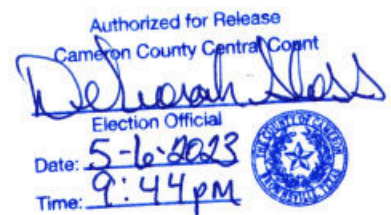 Authorized for Release
Cameron County Central Count
Deborah
Election Official
Date: 5-6-2023
Time: 9:44 pm
THE COUNTY OF CAMERON
BROWNSVILLE, TEXAS